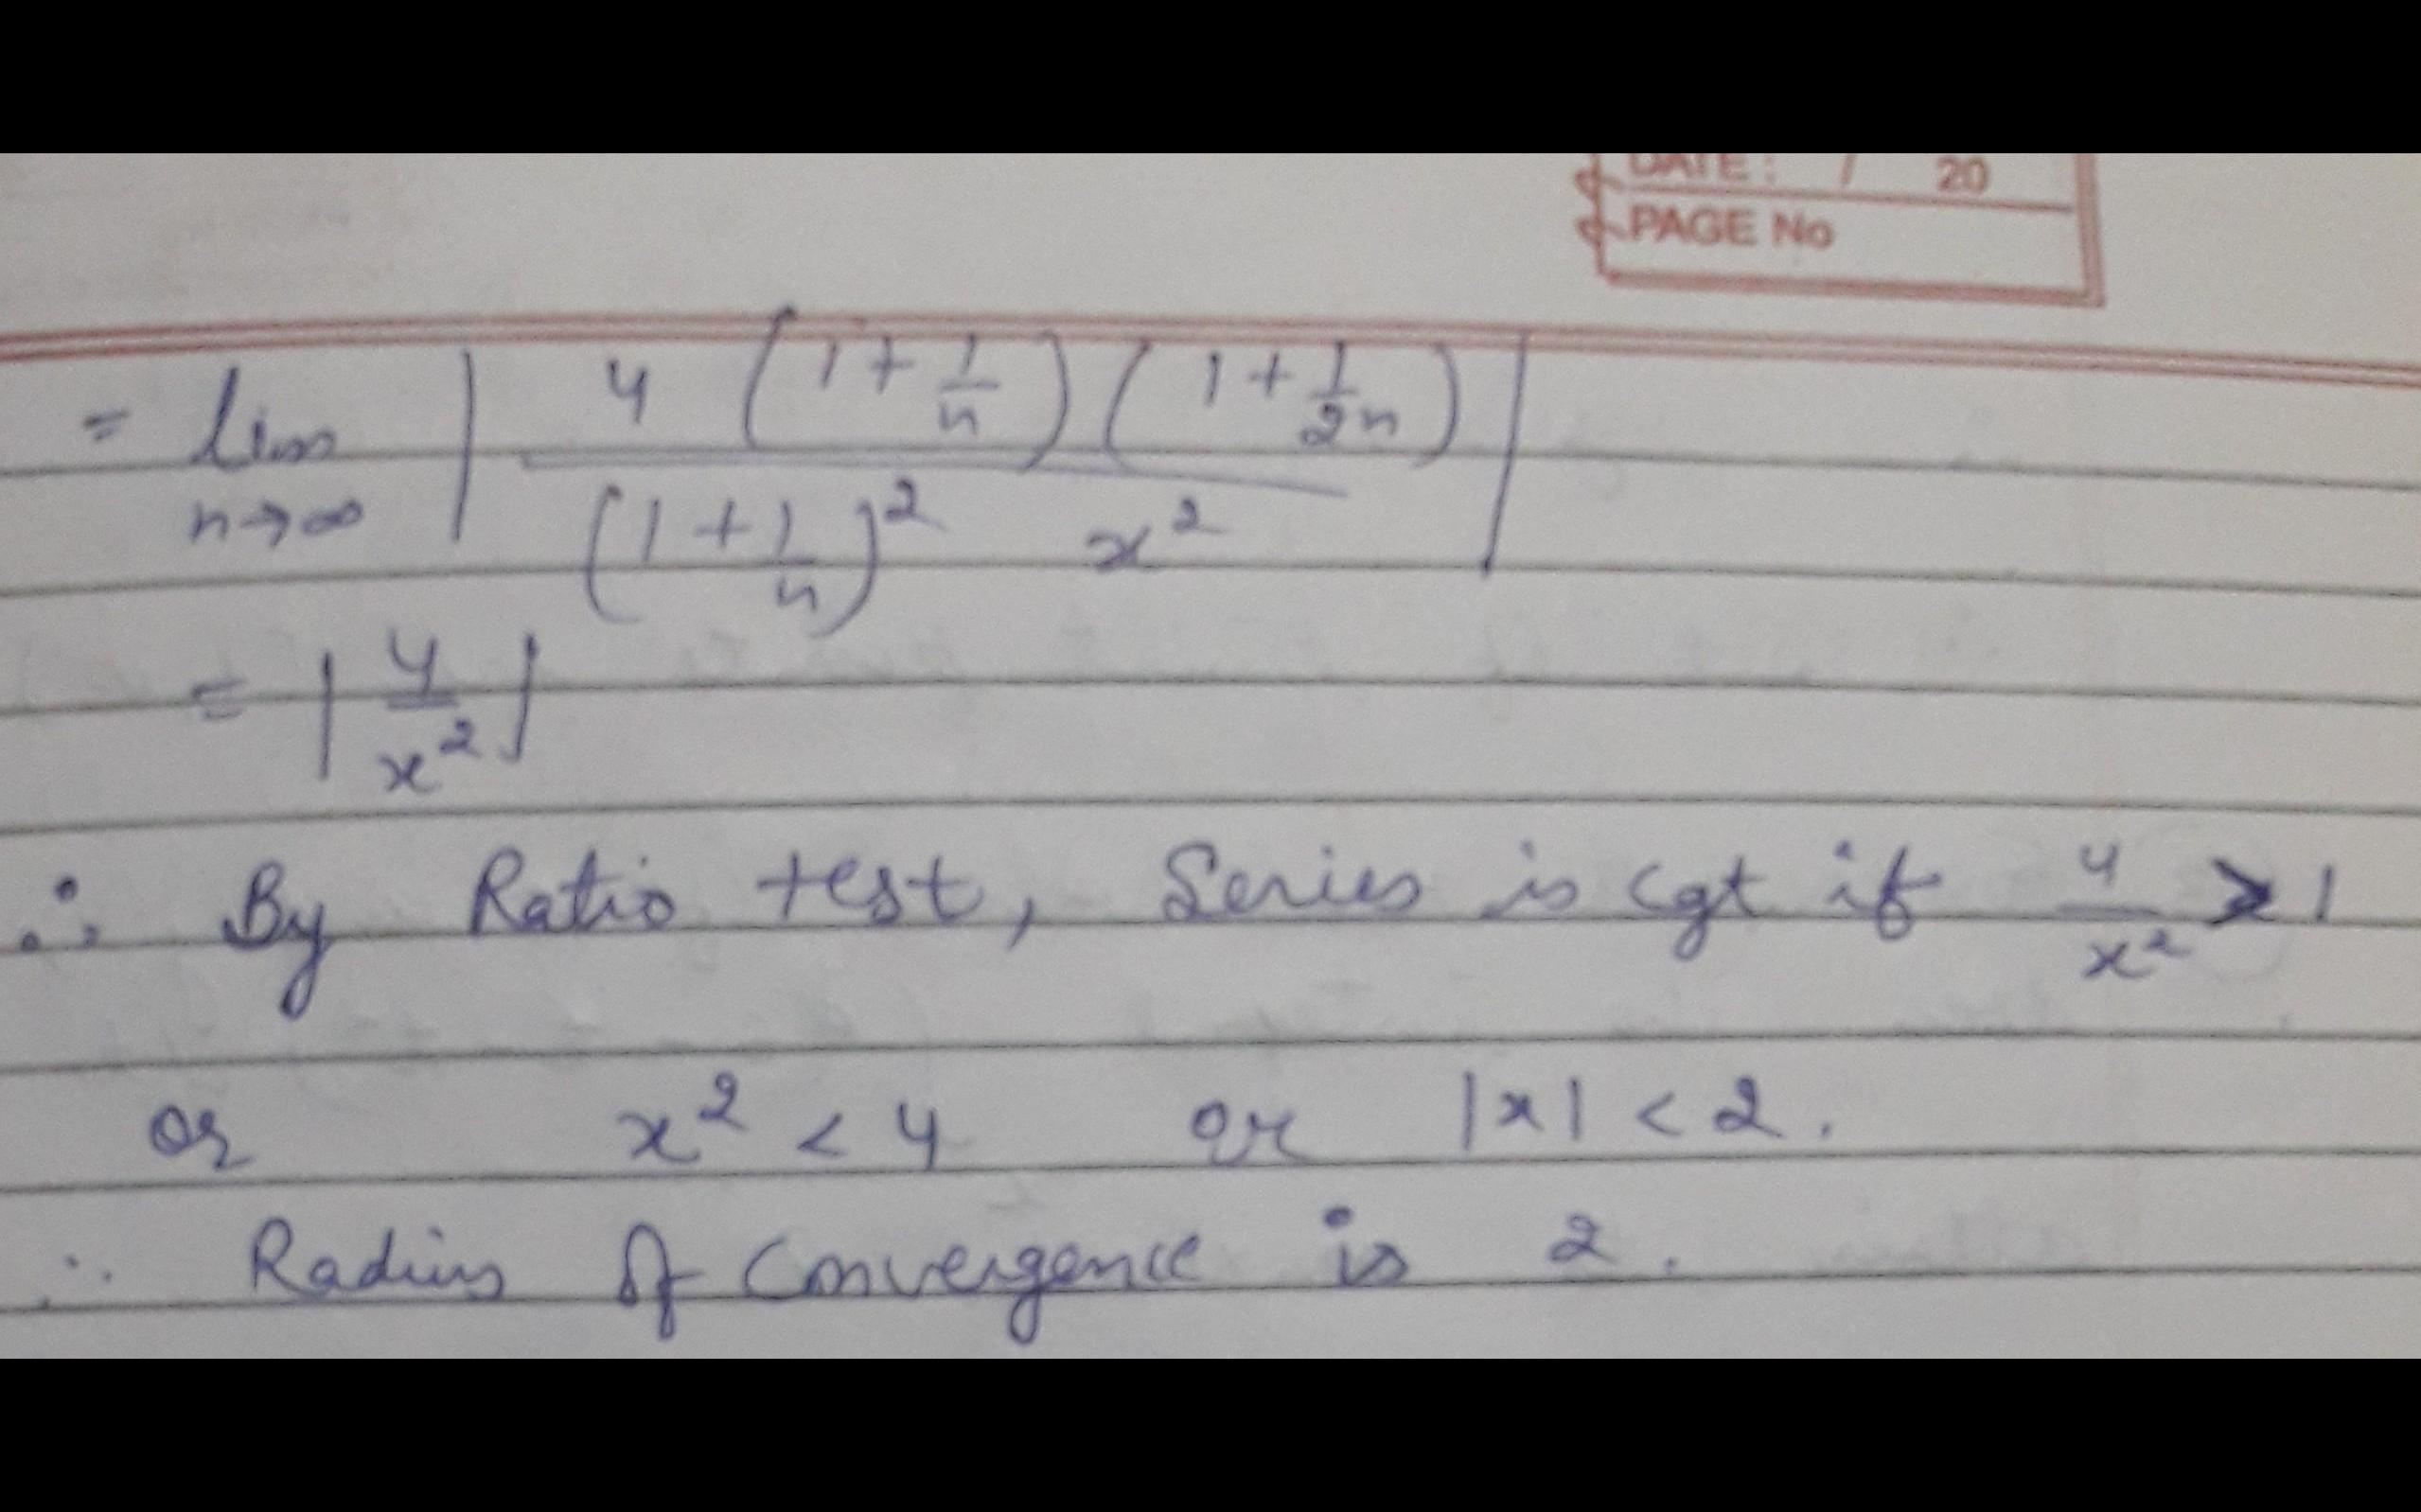 DATE: / 20
PAGE No
= lim n→∞ | 4 (1 + 1/n) (1 + 1/2n) / (1 + 1/n)² x² |
= | 4/x² |
∴ By Ratio test, Series is cgt if 4/x² > 1
or x² < 4 or |x| < 2.
∴ Radius of Convergence is 2.